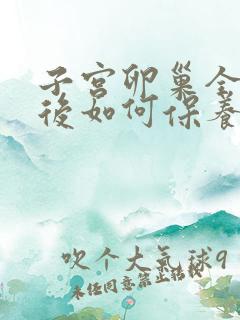 子宫卵巢全
後如何保養
吹个大氣球9
未经同意禁止转载